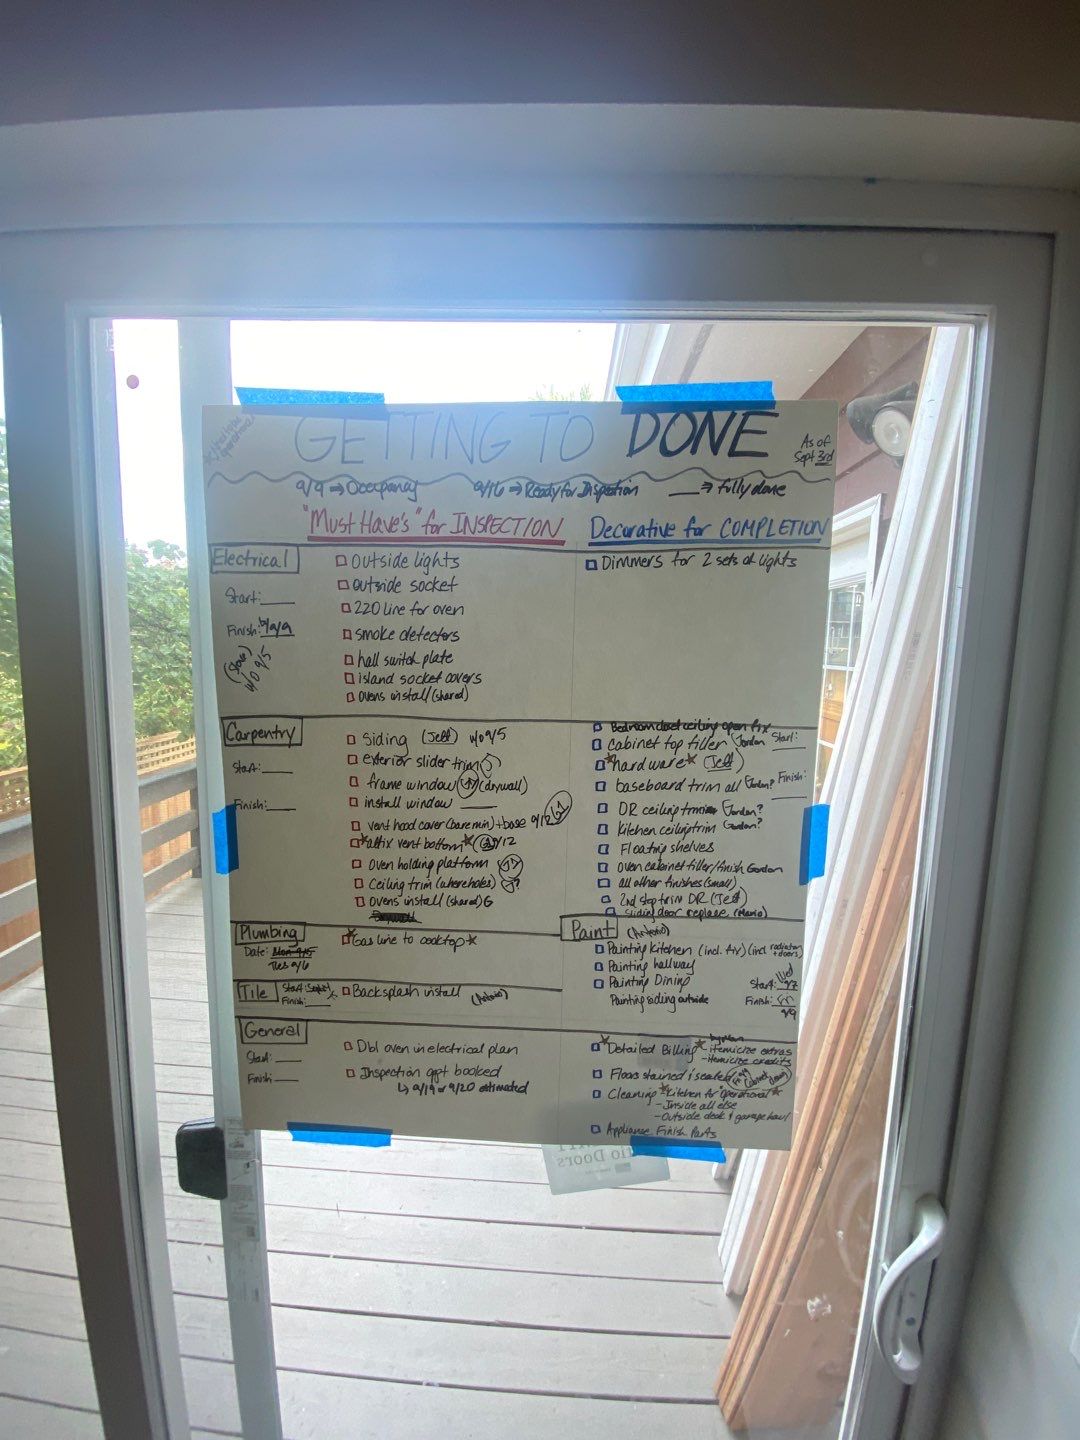 GETTING TO DONE
As of
Sept 3rd
9/9 → Occupancy 9/16 → Ready for Inspection ___ → fully done
"Must Have's" for INSPECTION
Decorative for COMPLETION
Electrical
Start: ___
Finish: 9/9
w/o 9/5
Outside lights
outside socket
220 line for oven
smoke detectors
hall switch plate
island socket covers
ovens install (shared)
Dimmers for 2 sets of lights
Carpentry
Start: ___
Finish: ___
Siding (Jeff) w/o 9/5
exterior slider trim
frame window (drywall)
install window ___
vent hood cover (bare min) + base 9/12
attix vent bottom 9/12
oven holding platform
Ceiling trim (where holes)
ovens install (shared) G
Bedroom closet ceiling open fix
cabinet top filler Jordan
Start: ___
hardware (Jeff)
baseboard trim all Jordan?
Finish: ___
DR ceiling trim Jordan?
Kitchen ceiling trim Jordan?
Floating shelves
oven cabinet filler/finish Gordon
all other finishes (small)
2nd step trim DR (Jeff)
sliding door replace (Mario)
Plumbing
Date: Mon 9/5
Tues 9/6
Gas line to cooktop
Tile
Start:
Finish:
Backsplash install (Antonio)
Paint (Antonio)
Painting Kitchen (incl. Av) (incl radiator + doors)
Painting hallway
Painting Dining
Painting siding outside
Start: Wed 9/7
Finish: Fri 9/9
General
Start: ___
Finish: ___
Dbl oven in electrical plan
Inspection appt booked
↳ 9/19 or 9/20 estimated
Detailed Billing - itemicize extras
- itemicize credits
Floors stained & sealed
Cleaning Kitchen for "operational"
- Inside all else
- Outside deck & garage haul
Appliance Finish Parts